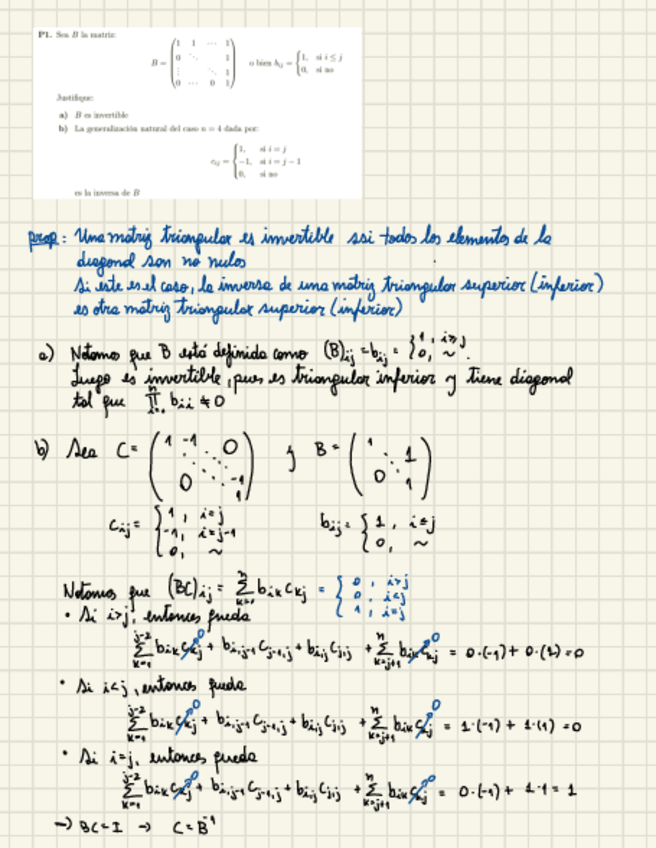 P1. Sea B la matriz:
B = (1 1 ⋯ 1; 0 ⋱ 1; ⋮ ⋱ 1; 0 ⋯ 0 1) o bien b_ij = {1, si i ≤ j; 0, si no
Justifique:
a) B es invertible
b) La generalización natural del caso n = 4 dada por:
c_ij = {1, si i = j; -1, si i = j - 1; 0, si no
es la inversa de B
prop: Una matriz triangular es invertible ssi todos los elementos de la
diagonal son no nulos
Si este es el caso, la inversa de una matriz triangular superior (inferior)
es otra matriz triangular superior (inferior)
a) Notamos que B está definida como (B)_ij = b_ij = {1, i≥j; 0, ~.
Luego es invertible, pues es triangular inferior y tiene diagonal
tal que ∏ b_ii ≠ 0
b) Sea C = (1 -1 0; ⋱ ⋱; 0 -1; 1) y B = (1; ⋱ 1; 0 1)
c_ij = {1, i=j; -1, i=j-1; 0, ~ b_ij = {1, i≤j; 0, ~
Notamos que (BC)_ij = Σ_{k=1}^{n} b_ik c_kj = {0, i>j; 0, i<j; 1, i=j
• Si i>j, entonces queda
Σ_{k=1}^{j-2} b_ik c_kj 0 + b_i,j-1 c_j-1,j + b_i,j c_j,j + Σ_{k=j+1}^{n} b_ik c_kj 0 = 0·(-1) + 0·(1) = 0
• Si i<j, entonces queda
Σ_{k=1}^{j-2} b_ik c_kj 0 + b_i,j-1 c_j-1,j + b_i,j c_j,j + Σ_{k=j+1}^{n} b_ik c_kj 0 = 1·(-1) + 1·(1) = 0
• Si i=j, entonces queda
Σ_{k=1}^{j-2} b_ik c_kj 0 + b_i,j-1 c_j-1,j + b_i,j c_j,j + Σ_{k=j+1}^{n} b_ik c_kj 0 = 0·(-1) + 1·1 = 1
→ BC = I → C = B^-1